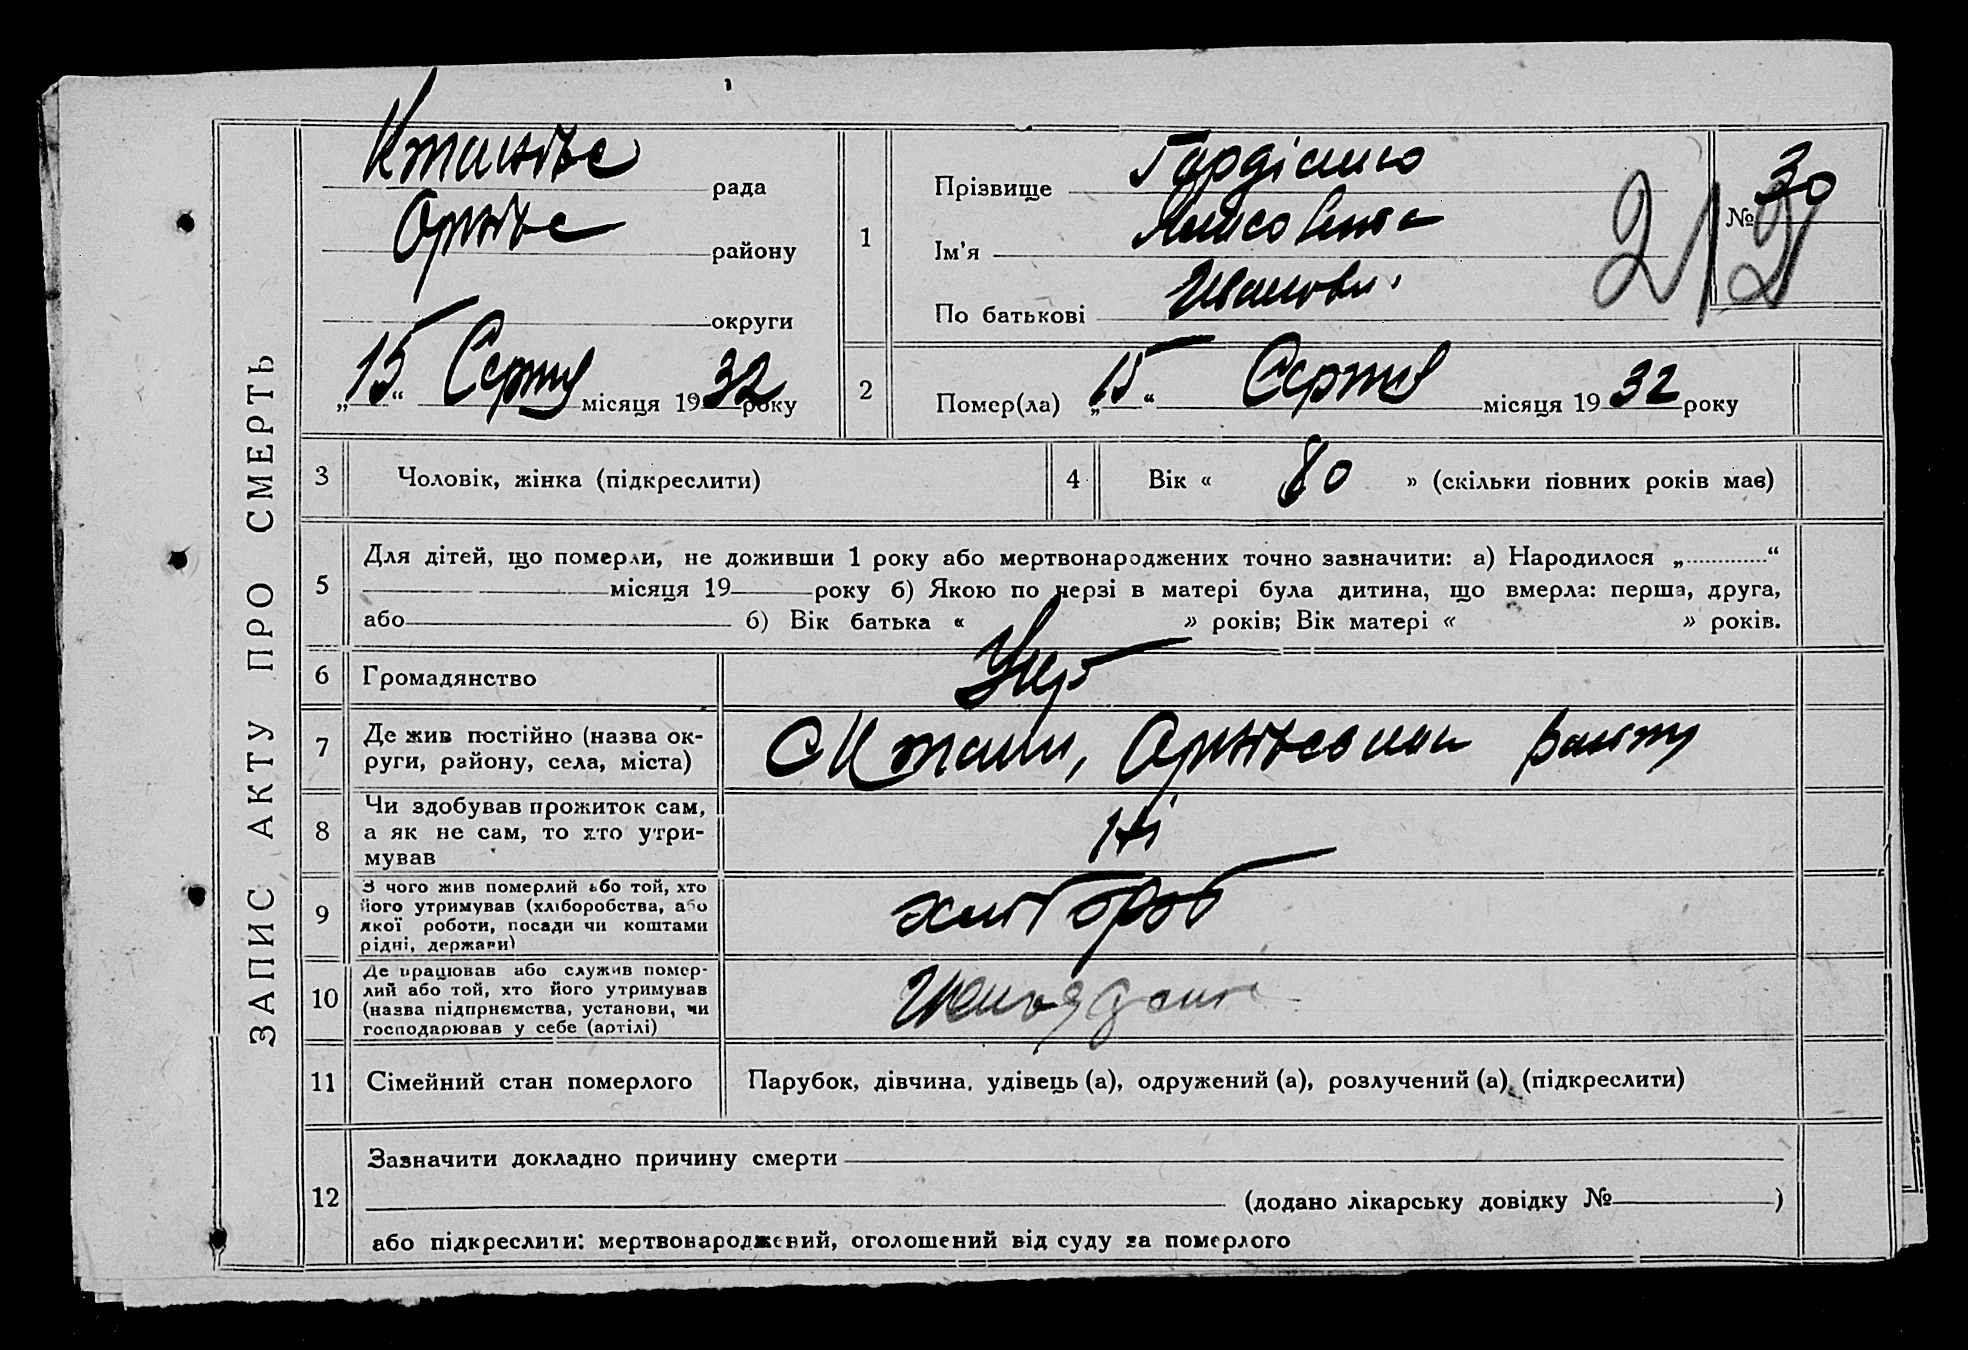 ЗАПИС АКТУ ПРО СМЕРТЬ
рада
району
округи
„15“ Серпня місяця 1932 року
1
Прізвище
Ім'я
По батькові
№ 30
212
2
Помер(ла) „15“ Серпня місяця 1932 року
3
Чоловік, жінка (підкреслити)
4
Вік « 80 » (скільки повних років має)
5
Для дітей, що померли, не доживши 1 року або мертвонароджених точно зазначити: а) Народилося „ “
місяця 19 року б) Якою по черзі в матері була дитина, що вмерла: перша, друга,
або б) Вік батька « » років; Вік матері « » років.
6
Громадянство
Укр
7
Де жив постійно (назва ок-
руги, району, села, міста)
8
Чи здобував прожиток сам,
а як не сам, то хто утри-
мував
Ні
9
З чого жив померлий або той, хто
його утримував (хліборобства, або
якої роботи, посади чи коштами
рідні, держави)
хлібороб
10
Де працював або служив помер-
лий або той, хто його утримував
(назва підпрнємства, установи, чи
господарював у себе (артілі)
11
Сімейний стан померлого
Парубок, дівчина, удівець (а), одружений (а), розлучений (а) (підкреслити)
12
Зазначити докладно причину смерти
(додано лікарську довідку № )
або підкреслити: мертвонароджений, оголошений від суду за померлого